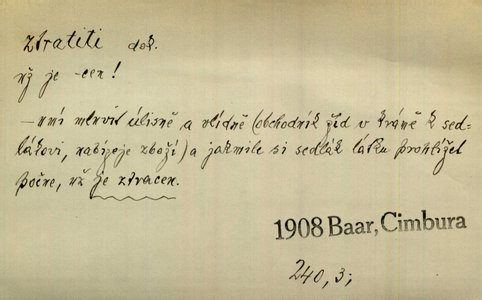 ztratiti dok.
už je -cen!
– umí mluvit úlisně a vlídně (obchodník žid v krámě k sed-
lákovi, nabízeje zboží) a jakmile si sedlák látku prohlížet
počne, už je ztracen.
1908 Baar, Cimbura
240, 3;